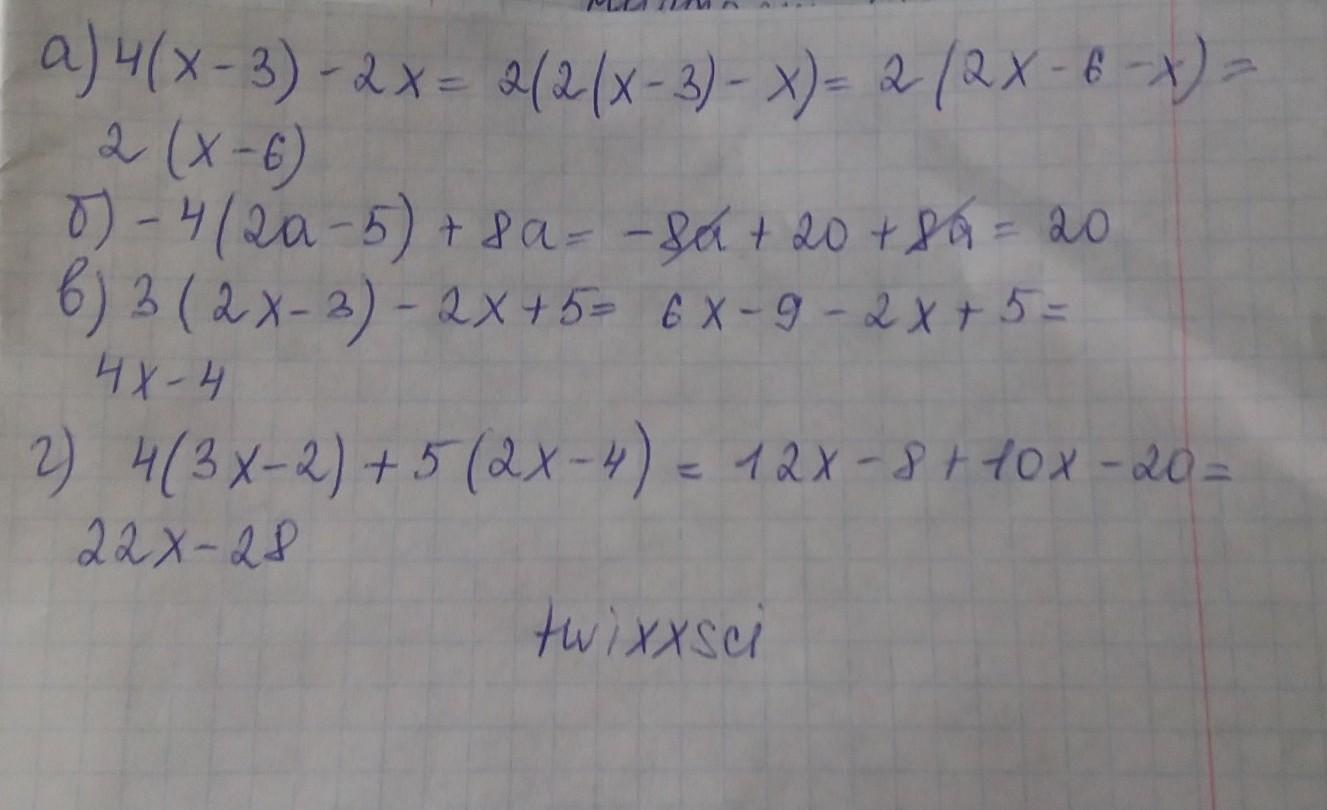 а) 4(x-3) - 2x = 2(2(x-3) - x) = 2(2x - 6 - x) =
2(x-6)
б) - 4(2a - 5) + 8a = -8a + 20 + 8a = 20
в) 3(2x-3) - 2x + 5 = 6x - 9 - 2x + 5 =
4x - 4
г) 4(3x-2) + 5(2x-4) = 12x - 8 + 10x - 20 =
22x - 28
twixxsci